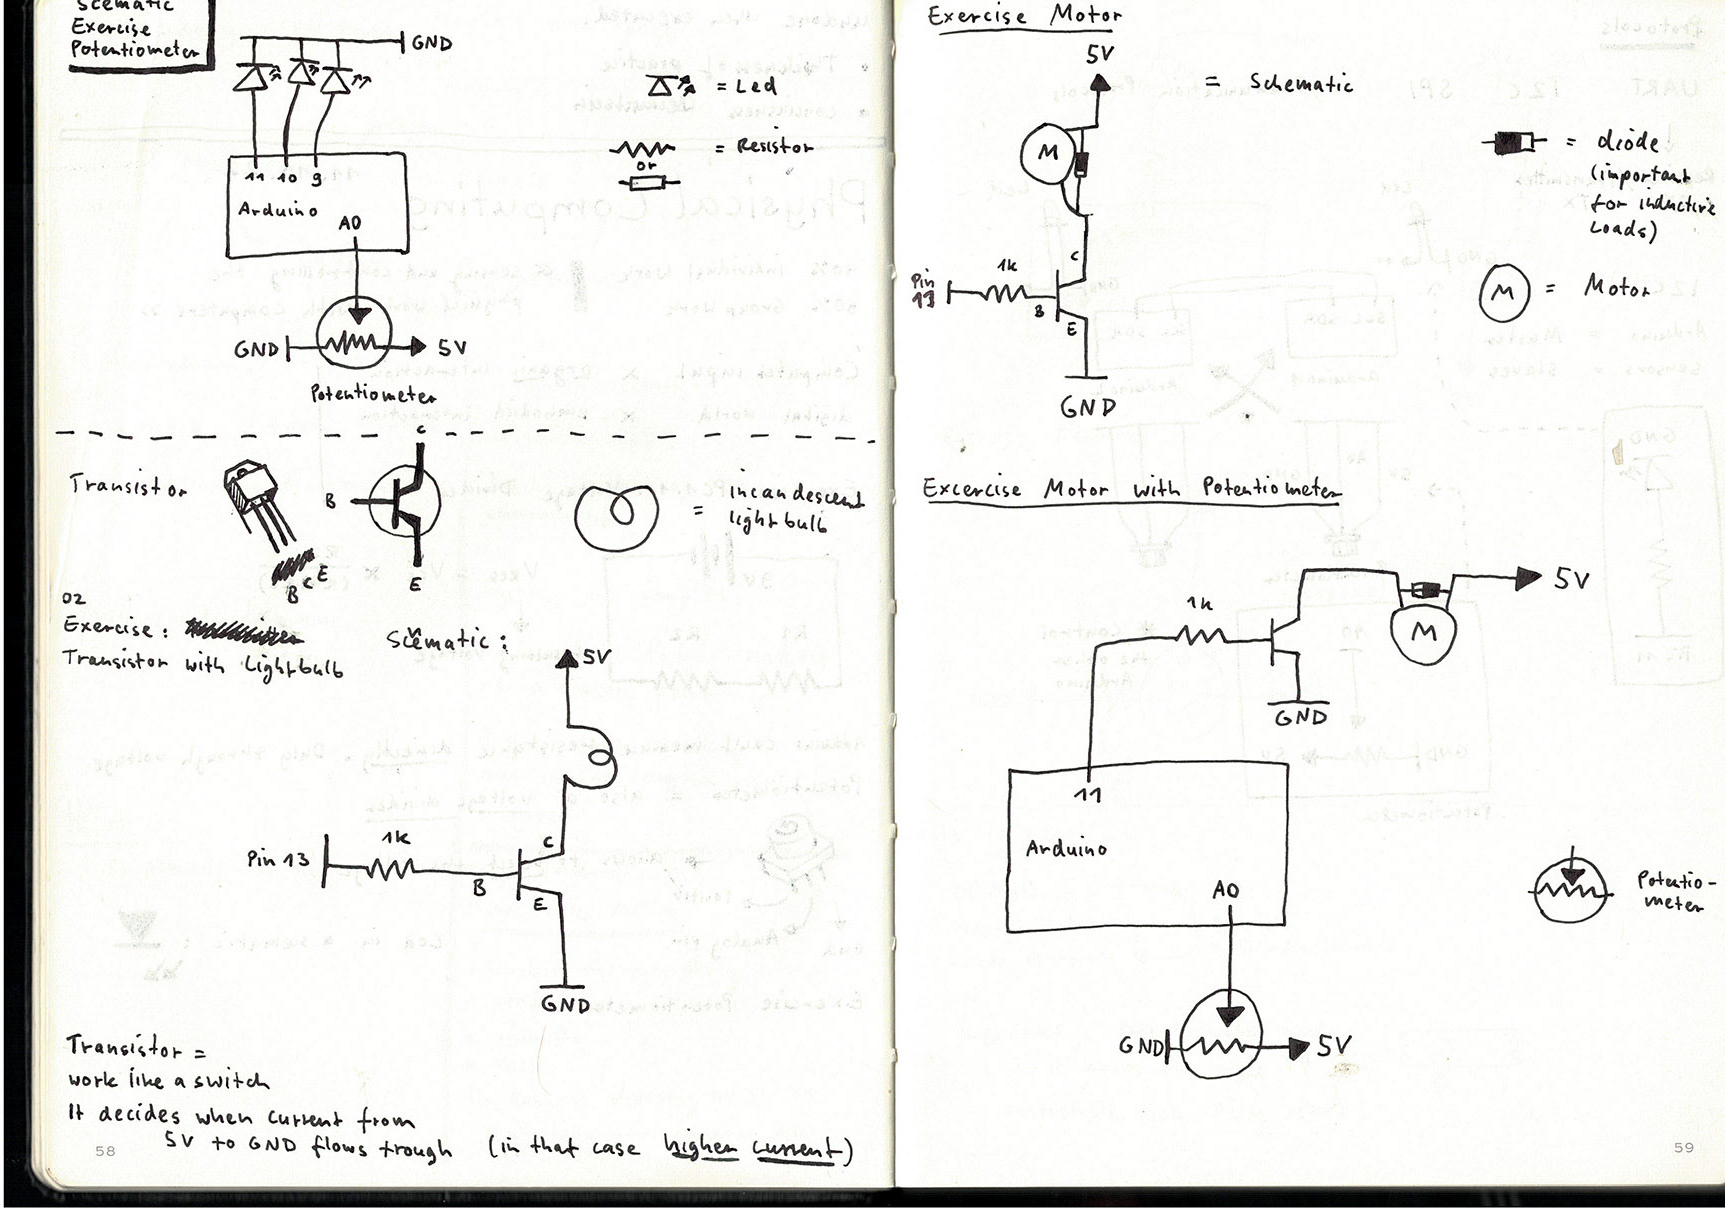 Scematic
Exercise
Potentiometer
GND
= Led
= Resistor
or
11 10 9
Arduino
A0
GND
5V
Potentiometer
Transistor
B C E
C
B
E
= incandescent
lightbulb
02
Exercise:
Transistor with Lightbulb
Scematic:
5V
1k
Pin 13
C
B
E
GND
Transistor =
work like a switch
It decides when current from
5V to GND flows trough (in that case higher current)
58
Exercise Motor
5V
= Schematic
M
= diode
(important
for inductive
Loads)
C
1k
Pin
13
B
E
GND
M = Motor
Excercise Motor with Potentiometer
5V
1k
M
GND
11
Arduino
A0
Potentio-
meter
GND
5V
59